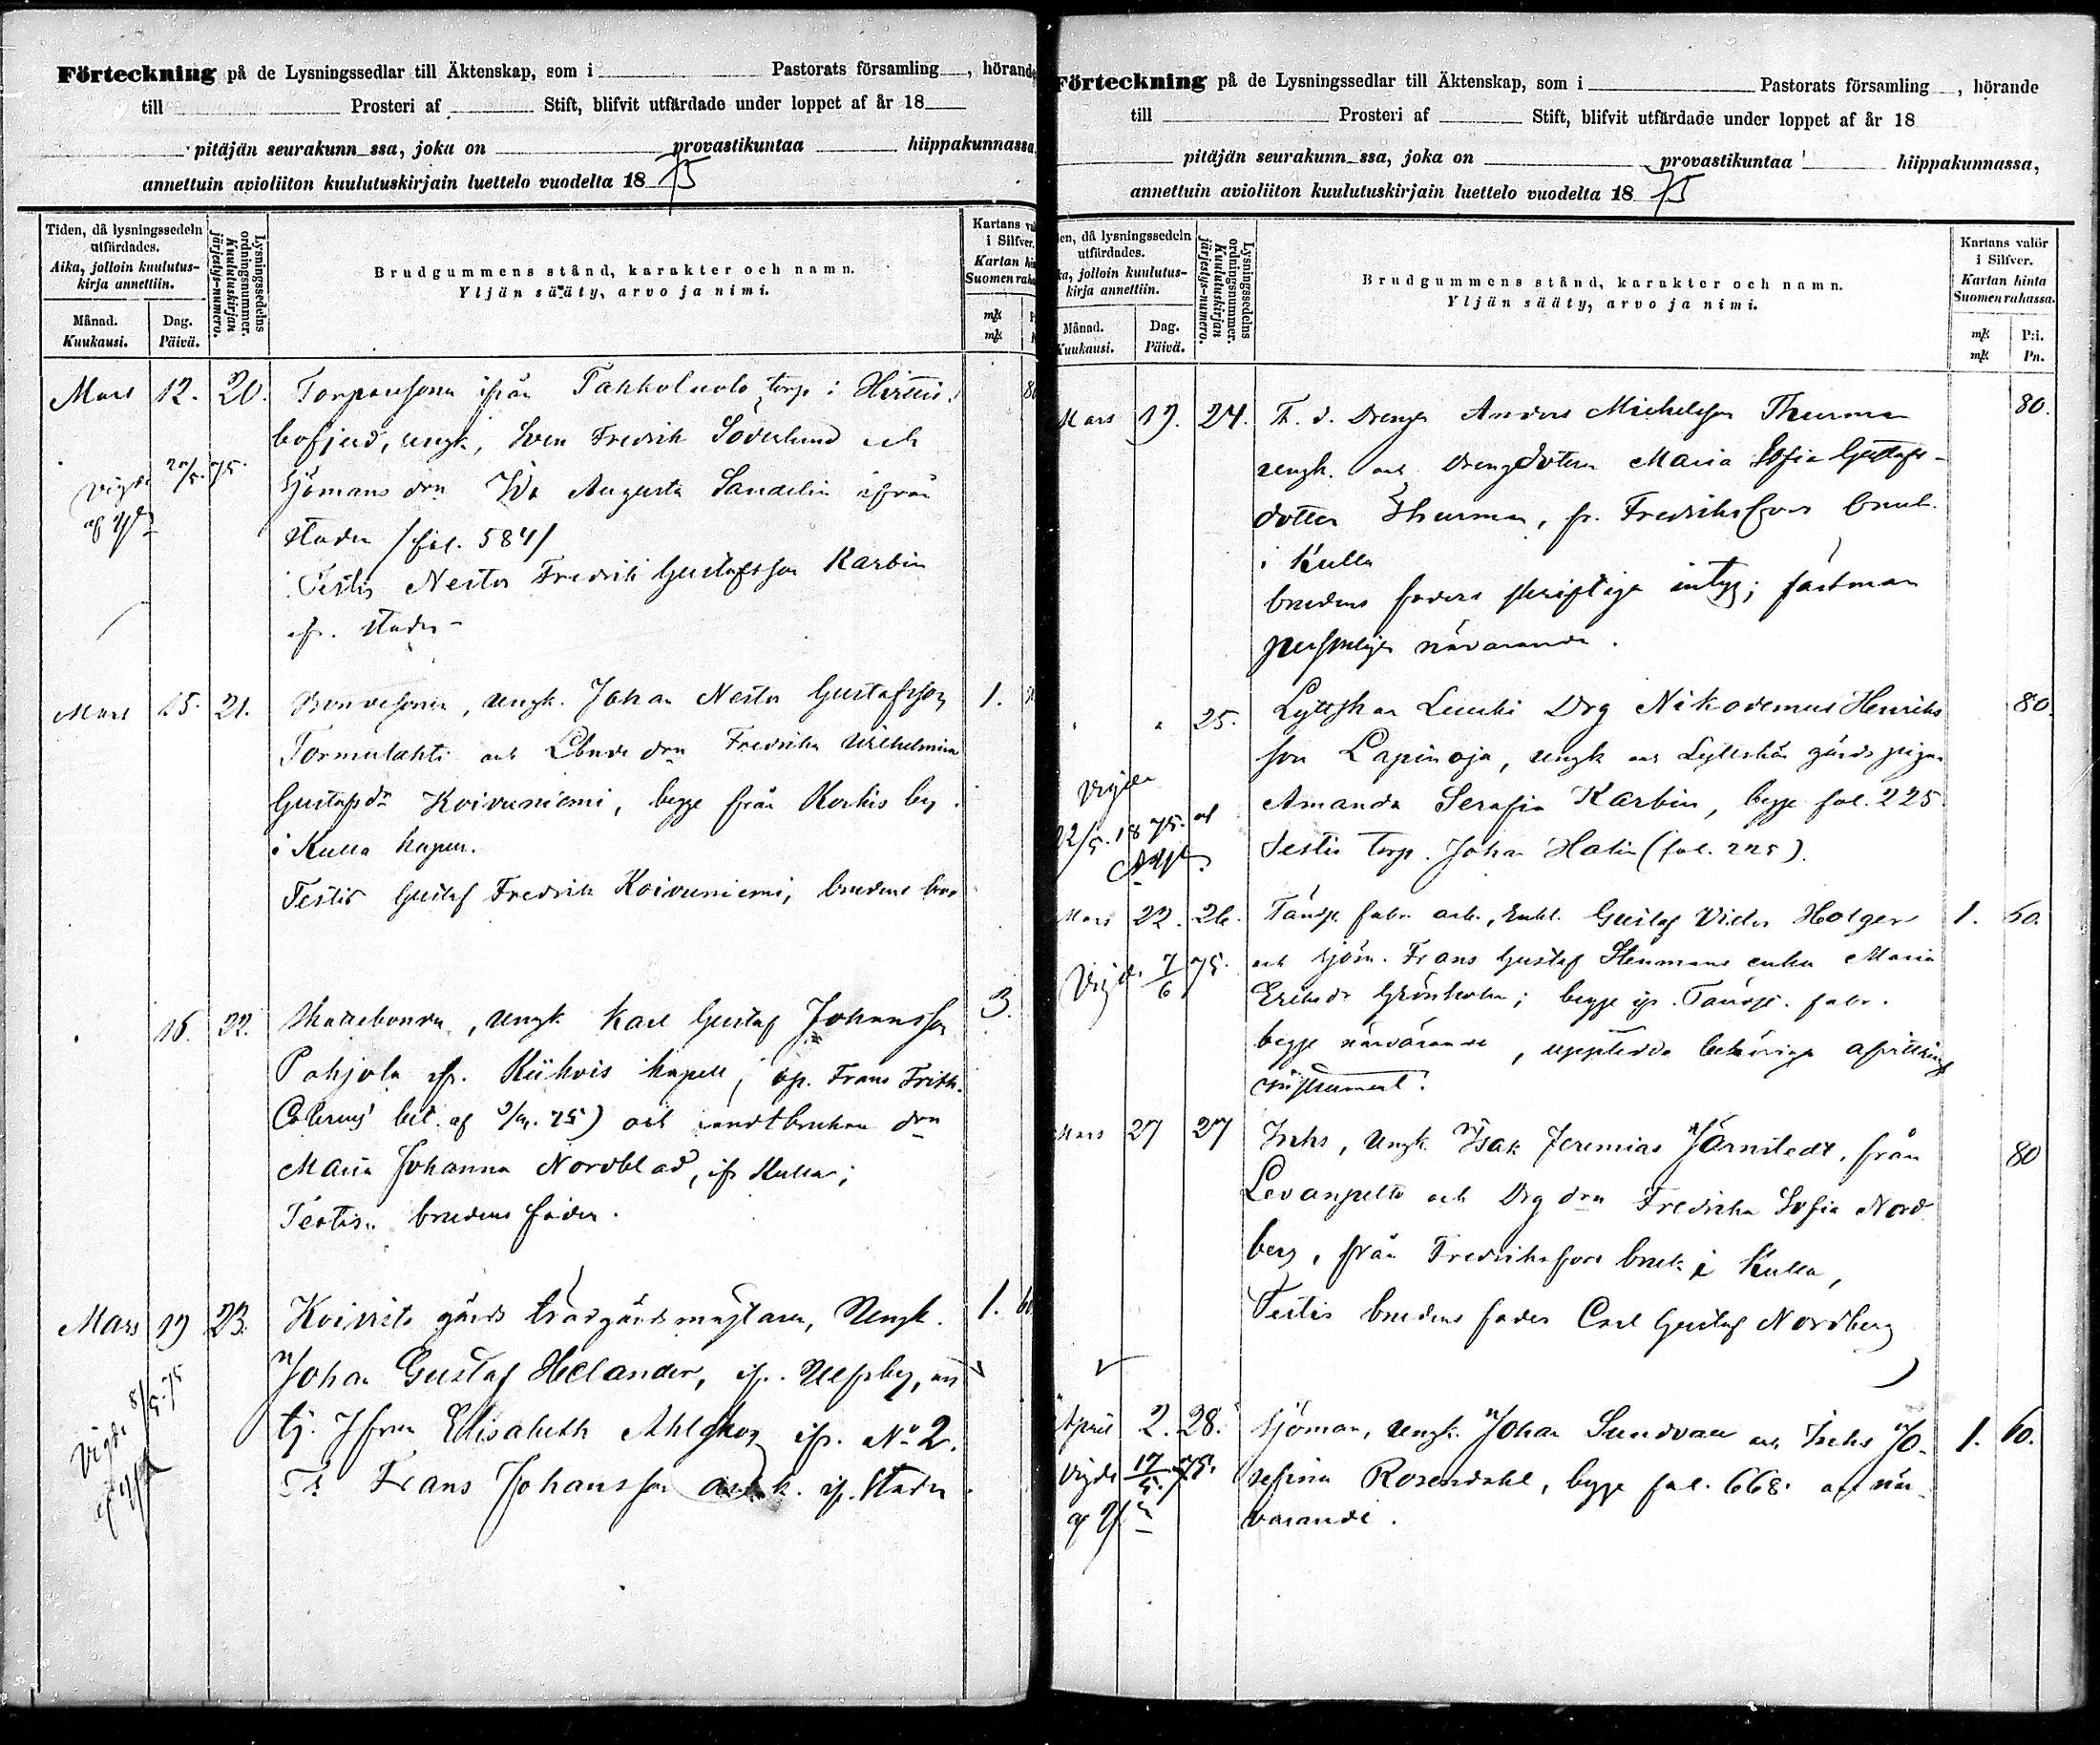 Förteckning på de Lysningssedlar till Äktenskap, som i Pastorats församling, hörande
till Prosteri af Stift, blifvit utfärdade under loppet af år 18
pitäjän seurakunn ssa, joka on provastikuntaa hiippakunnassa
annettuin avioliiton kuulutuskirjain luettelo vuodelta 1875
Tiden, då lysningssedeln
utfärdades.
Aika, jolloin kuulutus-
kirja annettiin.
Månad.
Kuukausi.
Dag.
Päivä.
Lysningssedelns
ordningsnummer.
Kuulutuskirjan
järjestys-numero.
Brudgummens stånd, karakter och namn.
Yljän sääty, arvo ja nimi.
Kartans
i Silfver.
Kartan
Suomen
mk
mk
Mars 12. 20. Torparesonen ifrån Tahkoluoto torp i
bofjerd, ungk, Sven Fredrik Söderlund och
Sjömans drn Ida Augusta Sandelin ifrån
staden /fol. 584/
Testis Nestor Fredrik Gustafsson Karbin
ifr. staden
Vigde 75.
af
Mars 15. 21. Bondesonen, ungk. Johan Nestor Gustafsson 1.
Tormulahti och drn Fredrika Wilhelmina
Gustafsdr Koivuniemi, begge från Korkis by
i Kulla kapell.
Testis Gustaf Fredrik Koivuniemi, brudens bror
16. 22. Skattebonden, ungk Karl Gustaf Johansson 3.
Pohjola ifr. Kiikois kapell, Frans Frith.
bet. af 75) och landtbrukare drn
Maria Johanna Nordblad, ifr Kulla;
Testis brudens fader.
Mars 19 23. Koivisto gårds trädgårdsmästaren, Ungk. 1.
Johan Gustaf Helander, ifr. Ulfsby, och
tj. Jfrun Elisabeth Ahlskog ifr. No 2.
Ts Frans Johansson ifr. staden
Vigde 8/5.75
af
Förteckning på de Lysningssedlar till Äktenskap, som i Pastorats församling, hörande
till Prosteri af Stift, blifvit utfärdade under loppet af år 18
pitäjän seurakunn ssa, joka on provastikuntaa hiippakunnassa,
annettuin avioliiton kuulutuskirjain luettelo vuodelta 1875
då lysningssedeln
utfärdades.
jolloin kuulutus-
kirja annettiin.
Månad.
Kuukausi.
Dag.
Päivä.
Lysningssedelns
ordningsnummer.
Kuulutuskirjan
järjestys-numero.
Brudgummens stånd, karakter och namn.
Yljän sääty, arvo ja nimi.
Kartans valör
i Silfver.
Kartan hinta
Suomen rahassa.
mk P:i.
mk Pn.
Mars 19. 24. F. d. Drengen Anders Michelsson Thurman 80.
ungk. och Drengdottern Maria Sofia Gustafs-
dotter Thurman, fr. Fredriksfors bruk
i Kulla
brudens faders skriftliga intyg; fästman
personligen närvarande.
" " 25. Lyttskär Drg Nikodemus Henriks 80.
son Lapinoja, ungk och Lyttskär gårds pigan
Amanda Serafia Karbin, begge fol. 225
Testis torp. Johan Halin (fol. 225).
Vigde
22/5.1875. af
Mars 22. 26. Tändst. fabr. arb., Enkl. Gustaf Victor Holger 1. 60.
och sjöm. Frans Gustaf Stenmans enka Maria
Eriksdr Grönholm; begge ifr. Tändst. fabr.
begge närvarande, upptedde behöriga afvittrings
instrument.
Vigde 7/6 75.
Mars 27 27 Inhs, Ungk. Isak Jeremias Järnstedt, från 80
Levanpelto och Drg drn Fredrika Sofia Nord
berg, från Fredriksfors bruk i Kulla,
Testis brudens fader Carl Gustaf Nordberg
April 2. 28. Sjöman, ungk. Johan Sundvall och Inhs Jo- 1. 60.
sefina Rosendahl, begge fol. 668. och när
varande.
Vigde 17/5.75.
af